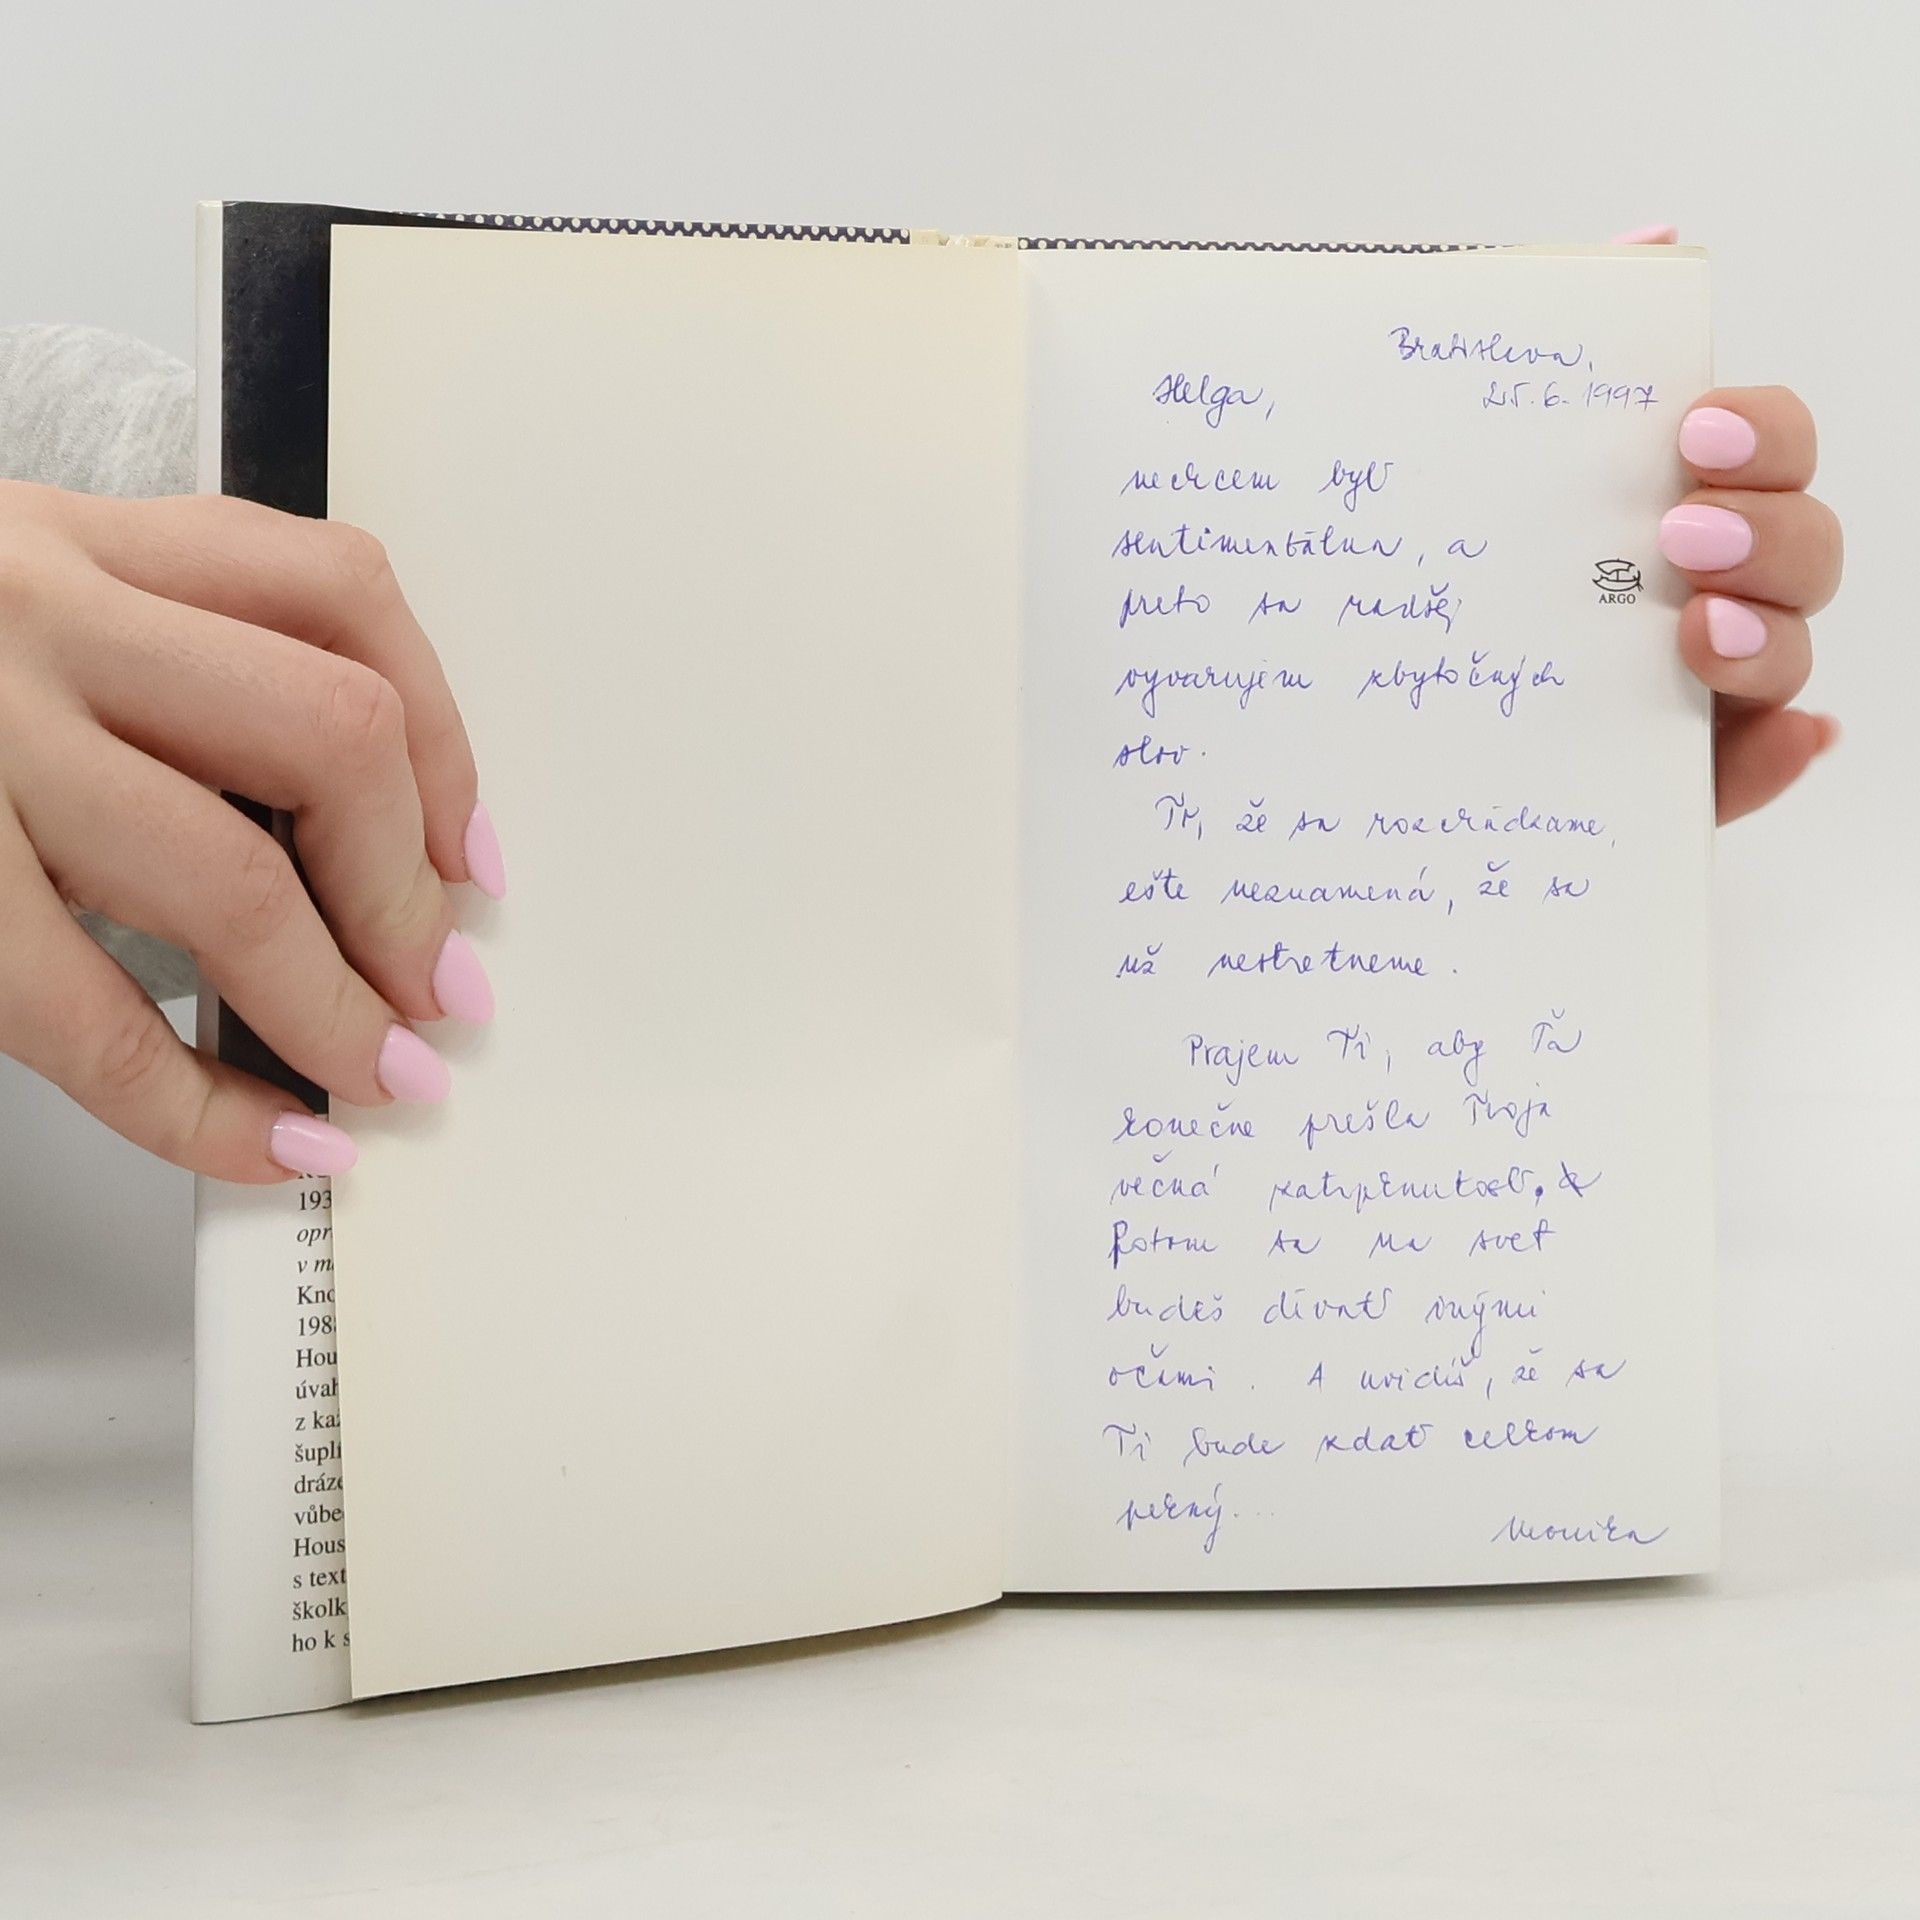 193
opr
v m
Kno
198
Hou
úvah
z kaž
šuplí
dráze
vůbe
Hous
s text
školk
ho k s
Bratislava,
25. 6. 1997
Helga,
nechcem byť
sentimentálna, a
preto sa radšej
vyvarujem zbytočných
slov.
To, že sa rozchádzame,
ešte neznamená, že sa
už nestretneme.
Prajem Ti, aby Ťa
konečne prešla Tvoja
večná zatrpknutosť.
Potom sa na svet
budeš dívať inými
očami. A uvidíš, že sa
Ti bude zdať celkom
pekný...
Monika
ARGO